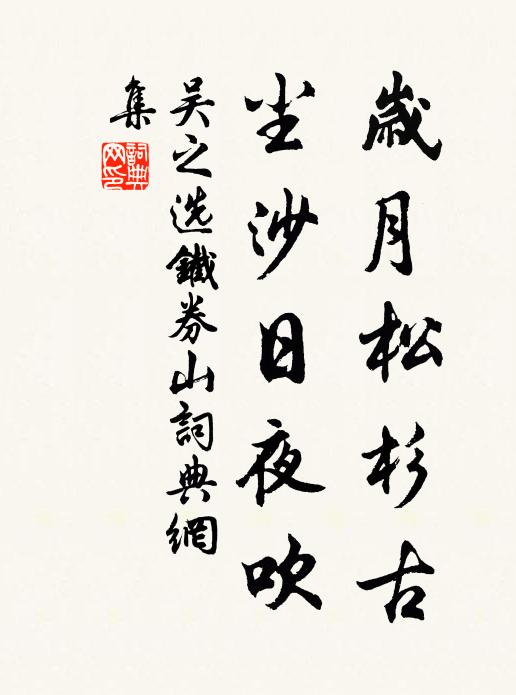 歲月松杉古
尘沙日夜吹
吴之选鐵券山詞典網
集
詞典网印